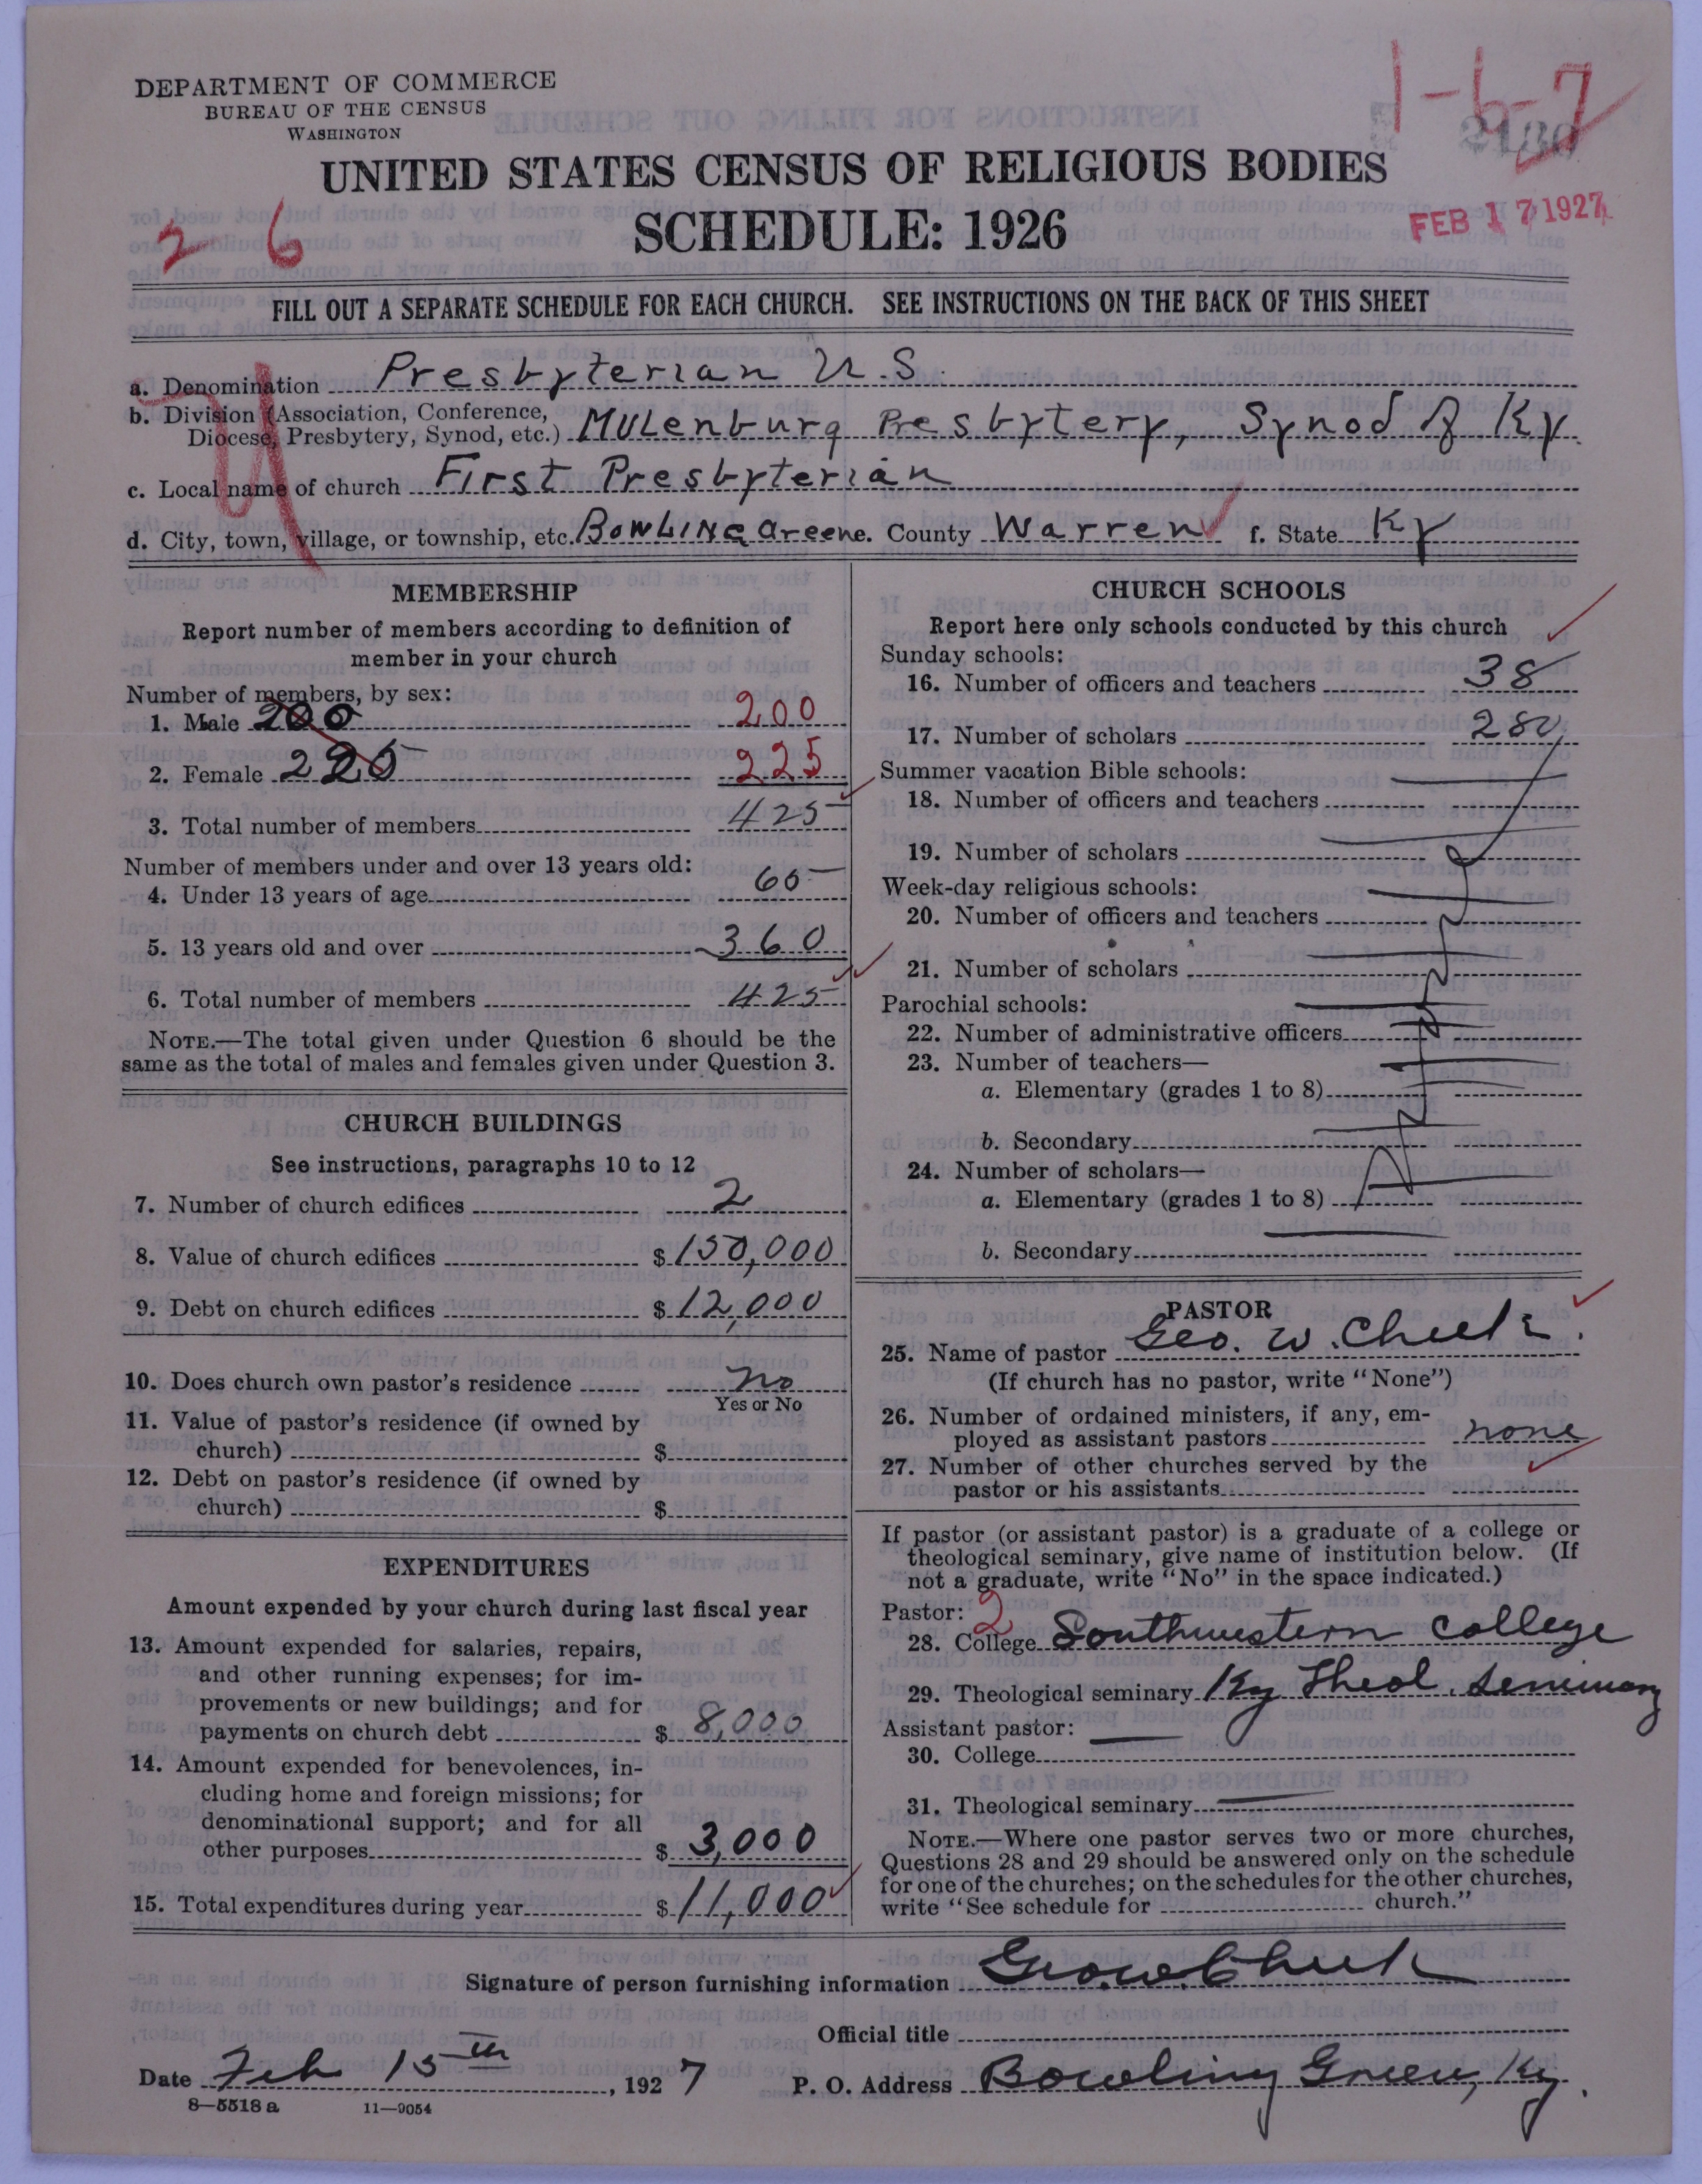 DEPARTMENT OF COMMERCE
BUREAU OF THE CENSUS
WASHINGTON
1-6-7
UNITED STATES CENSUS OF RELIGIOUS BODIES
SCHEDULE: 1926
FEB 17 1927
2 6
FILL OUT A SEPARATE SCHEDULE FOR EACH CHURCH. SEE INSTRUCTIONS ON THE BACK OF THIS SHEET
a. Denomination Presbyterian U.S.
b. Division (Association, Conference,
Diocese, Presbytery, Synod, etc.) Mulenburg Presbytery, Synod of Ky.
c. Local name of church First Presbyterian
d. City, town, village, or township, etc. Bowling Greene. County Warren f. State Ky
MEMBERSHIP
Report number of members according to definition of
member in your church
Number of members, by sex:
1. Male 200 200
2. Female 225 225
3. Total number of members 425
Number of members under and over 13 years old:
4. Under 13 years of age 65
5. 13 years old and over 360
6. Total number of members 425
NOTE.—The total given under Question 6 should be the
same as the total of males and females given under Question 3.
CHURCH BUILDINGS
See instructions, paragraphs 10 to 12
7. Number of church edifices 2
8. Value of church edifices $150,000
9. Debt on church edifices $12,000
10. Does church own pastor's residence no
Yes or No
11. Value of pastor's residence (if owned by
church) $
12. Debt on pastor's residence (if owned by
church) $
EXPENDITURES
Amount expended by your church during last fiscal year
13. Amount expended for salaries, repairs,
and other running expenses; for im-
provements or new buildings; and for
payments on church debt $ 8,000
14. Amount expended for benevolences, in-
cluding home and foreign missions; for
denominational support; and for all
other purposes $ 3,000
15. Total expenditures during year $11,000
CHURCH SCHOOLS
Report here only schools conducted by this church
Sunday schools:
16. Number of officers and teachers 38
17. Number of scholars 280
Summer vacation Bible schools:
18. Number of officers and teachers
19. Number of scholars
Week-day religious schools:
20. Number of officers and teachers
21. Number of scholars
Parochial schools:
22. Number of administrative officers
23. Number of teachers—
a. Elementary (grades 1 to 8)
b. Secondary
24. Number of scholars—
a. Elementary (grades 1 to 8)
b. Secondary
PASTOR
25. Name of pastor Geo. W. Cheek.
(If church has no pastor, write "None")
26. Number of ordained ministers, if any, em-
ployed as assistant pastors none
27. Number of other churches served by the
pastor or his assistants
If pastor (or assistant pastor) is a graduate of a college or
theological seminary, give name of institution below. (If
not a graduate, write "No" in the space indicated.)
Pastor: 2
28. College Southwestern College
29. Theological seminary Ky Theol. Seminary
Assistant pastor:
30. College
31. Theological seminary
NOTE.—Where one pastor serves two or more churches,
Questions 28 and 29 should be answered only on the schedule
for one of the churches; on the schedules for the other churches,
write "See schedule for church."
Signature of person furnishing information Geo. W. Cheek
Official title
Date Feb 15th, 1927 P. O. Address Bowling Green, Ky.
8—5518 a 11—9054